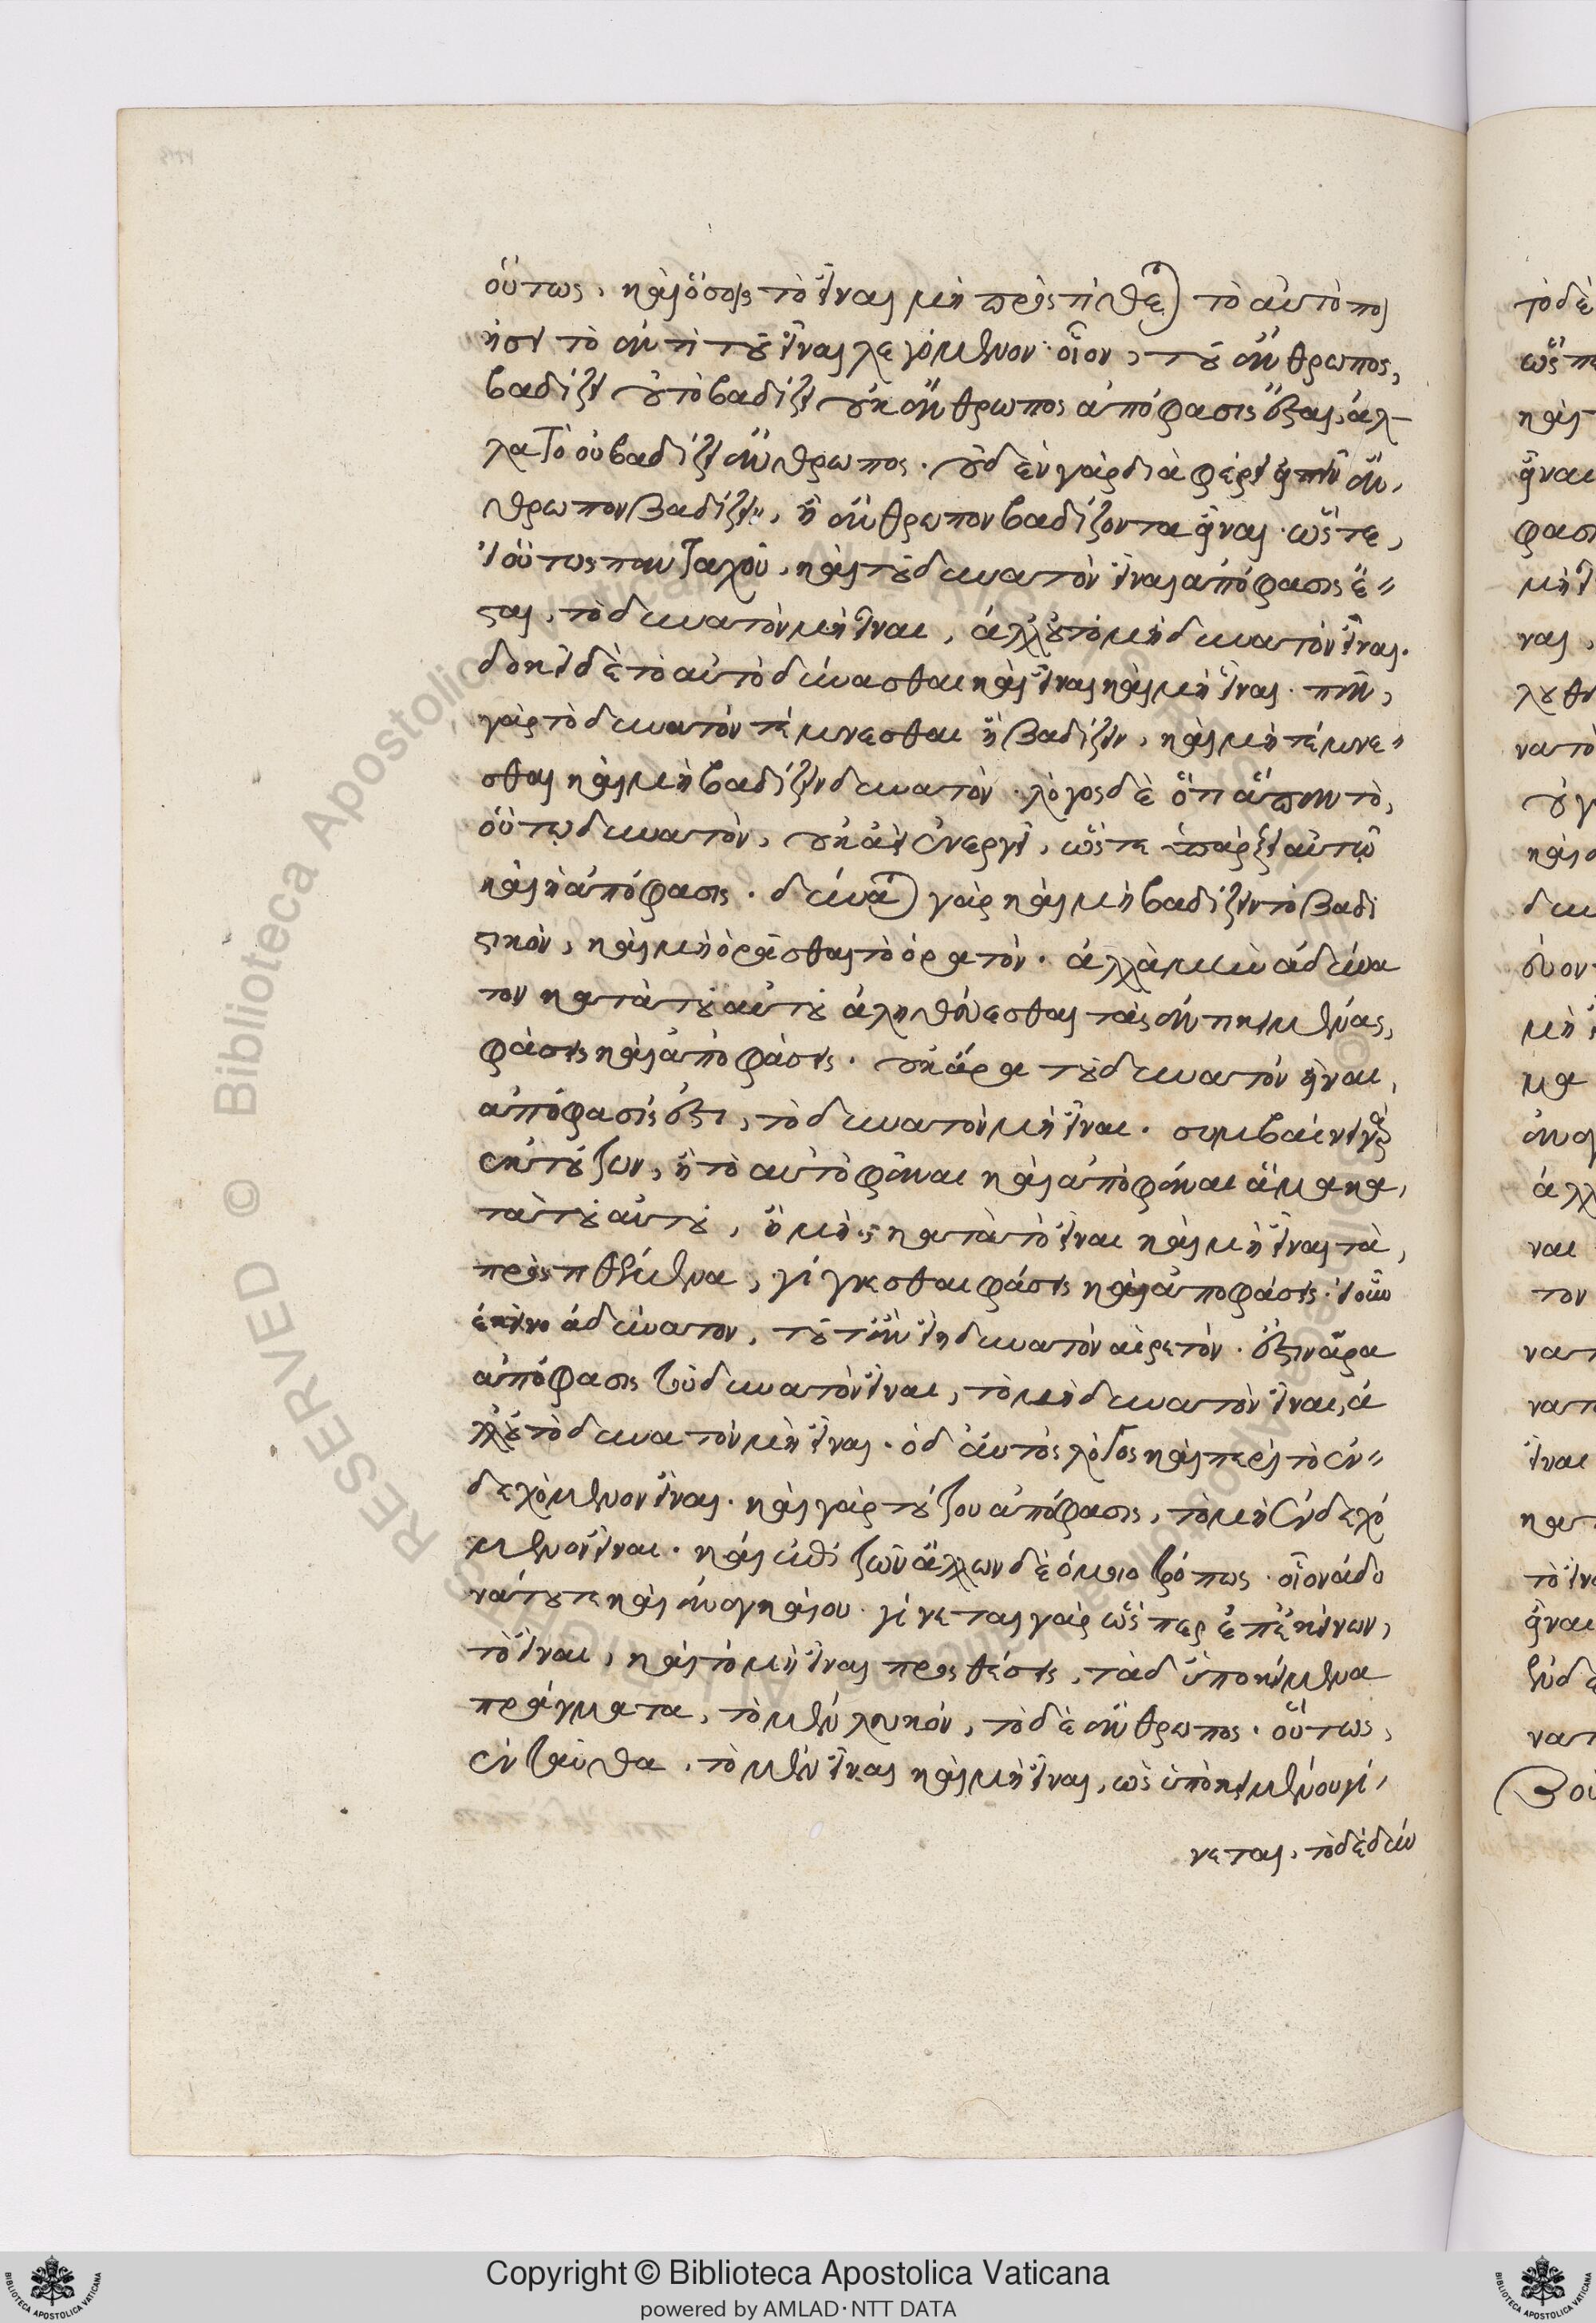 οὕτως, καὶ ὅσοις τὸ εἶναι μὴ προςτίθεται τὸ αὐτὸ ποι
ήσει τὸ ἀντὶ τοῦ εἶναι λεγόμενον· οἷον, τοῦ ἄνθρωπος,
βαδίζει οὐ τὸ βαδίζει οὐκ ἄνθρωπος ἀπόφασις ἔσται, ἀλ-
λα τὸ οὐ βαδίζει ἄνθρωπος. οὐδὲν γὰρ διαφέρει εἰπεῖν ἄν,
θρωπον βαδίζειν, ἢ ἄνθρωπον βαδίζοντα εἶναι. ὥστε,
εἰ οὕτως πανταχοῦ, καὶ τοῦ δυνατὸν εἶναι ἀπόφασις ἔ=
σται, τὸ δυνατὸν μὴ εἶναι, ἀλλ' οὐ τὸ μὴ δυνατὸν εἶναι.
δοκεῖ δὲ τὸ αὐτὸ δύνασθαι καὶ εἶναι καὶ μὴ εἶναι. πᾶν,
γὰρ τὸ δυνατὸν τέμνεσθαι ἢ βαδίζειν, καὶ μὴ τέμνε=
σθαι καὶ μὴ βαδίζειν δυνατόν. λόγος δὲ ὅτι ἅπαν τὸ,
οὕτω δυνατὸν, οὐκ ἀεὶ ἐνεργεῖ, ὥστε ὑπάρξει αὐτῷ
καὶ ἡ ἀπόφασις. δύναται γὰρ καὶ μὴ βαδίζειν τὸ βαδι
στικόν, καὶ μὴ ὁρᾶσθαι τὸ ὁρατόν. ἀλλὰ μὴν ἀδύνα
τον κατὰ τοῦ αὐτοῦ ἀληθεύεσθαι τὰς ἀντικειμένας,
φάσεις καὶ ἀποφάσεις. οὐκ ἄρα τοῦ δυνατὸν εἶναι,
ἀπόφασίς ἐστι, τὸ δυνατὸν μὴ εἶναι. συμβαίνει γὰρ
ἐκ τούτων, ἢ τὸ αὐτὸ φάναι καὶ ἀποφάναι ἅμα κα,
τὰ τοῦ αὐτοῦ, ἢ μὴ κατὰ τὸ εἶναι καὶ μὴ εἶναι τὰ,
προςτιθέμενα, γίγνεσθαι φάσεις καὶ ἀποφάσεις. εἰ οὖν
ἐκεῖνο ἀδύνατον, τοῦτ' ἂν εἴη δυνατὸν αἱρετόν. ἔστιν ἄρα
ἀπόφασις τοῦ δυνατὸν εἶναι, τὸ μὴ δυνατὸν εἶναι, ἀ
λλ' οὐ τὸ δυνατὸν μὴ εἶναι. ὁ δ' αὐτὸς λόγος καὶ περὶ τὸ ἐν=
δεχόμενον εἶναι. καὶ γὰρ τούτου ἀπόφασις, τὸ μὴ ἐνδεχό
μενον εἶναι. καὶ ἐπὶ τῶν ἄλλων δὲ ὁμοιοτρόπως. οἷον ἀδυ
νάτου τε καὶ ἀναγκαίου. γίνεται γὰρ ὥςπερ ἐπ' ἐκείνων,
τὸ εἶναι, καὶ τὸ μὴ εἶναι προςθέσεις, τὰ δ' ὑποκείμενα
πράγματα, τὸ μὲν λευκόν, τὸ δὲ ἄνθρωπος. οὕτως,
ἐνταῦθα, τὸ μὲν εἶναι καὶ μὴ εἶναι, ὡς ὑποκειμένου γί,
νεται, τὸ δὲ δύν
Copyright © Biblioteca Apostolica Vaticana
powered by AMLAD·NTT DATA